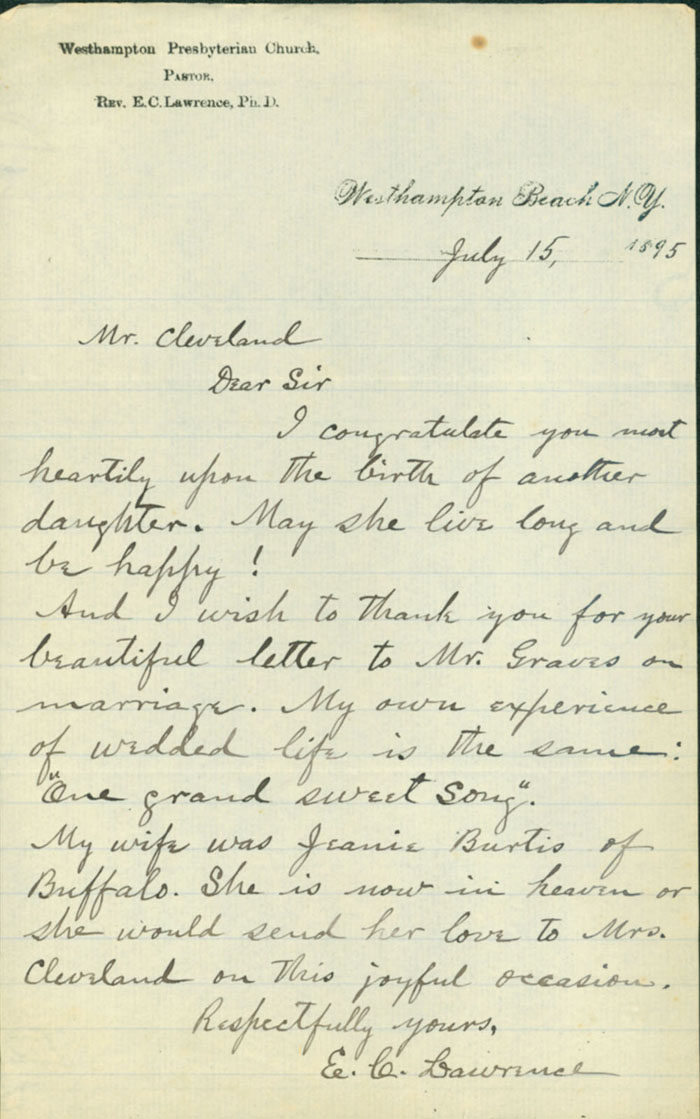 Westhampton Presbyterian Church,
Pastor,
Rev. E.C. Lawrence, Ph.D.
Westhampton Beach N.Y.
July 15, 1895
Mr. Cleveland
Dear Sir
I congratulate you most
heartily upon the birth of another
daughter. May she live long and
be happy!
And I wish to thank you for your
beautiful letter to Mr. Graves on
marriage. My own experience
of wedded life is the same:
"One grand sweet song".
My wife was Jeanie Burtis of
Buffalo. She is now in heaven or
she would send her love to Mrs.
Cleveland on this joyful occasion.
Respectfully yours,
E. C. Lawrence